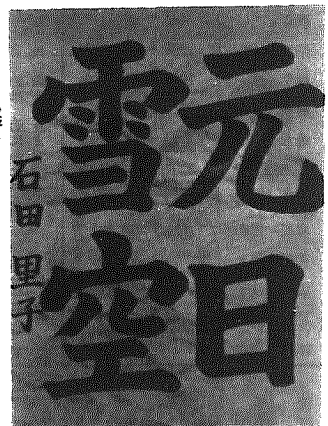 元日
雪空
石田里子